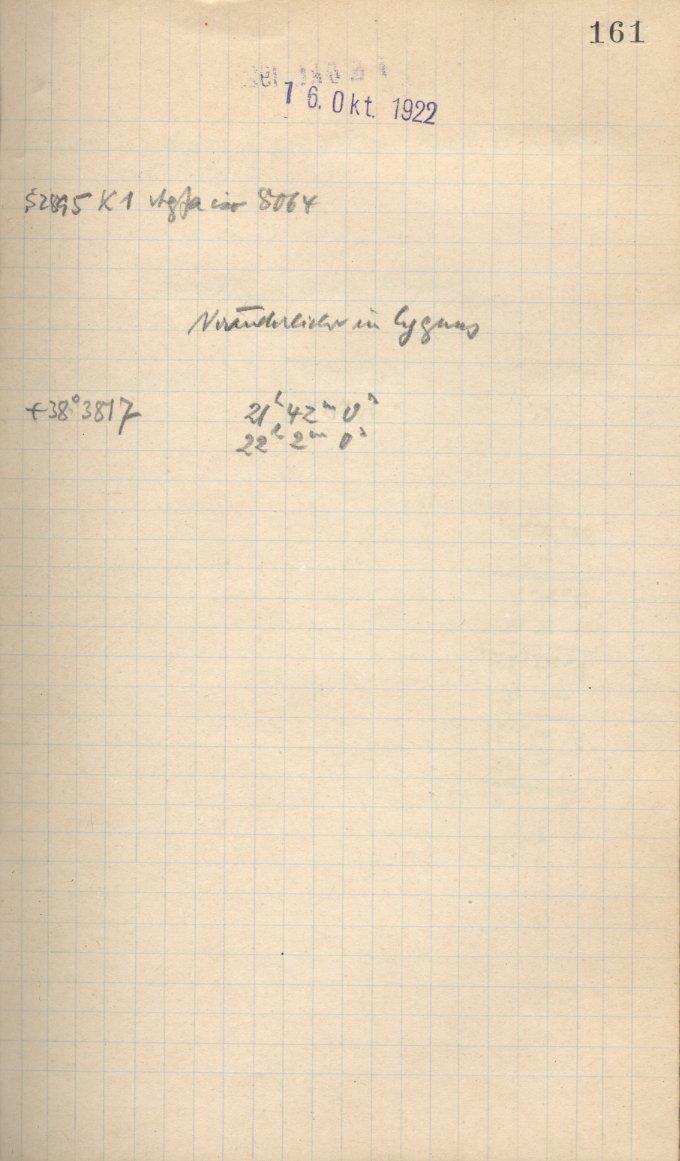 161
16. Okt. 1922
S2895 K1 Agfa iso 8064
Veränderlicher in Cygnus
+38° 3817 21ʰ 42ᵐ 0ˢ
22ʰ 2ᵐ 0ˢ